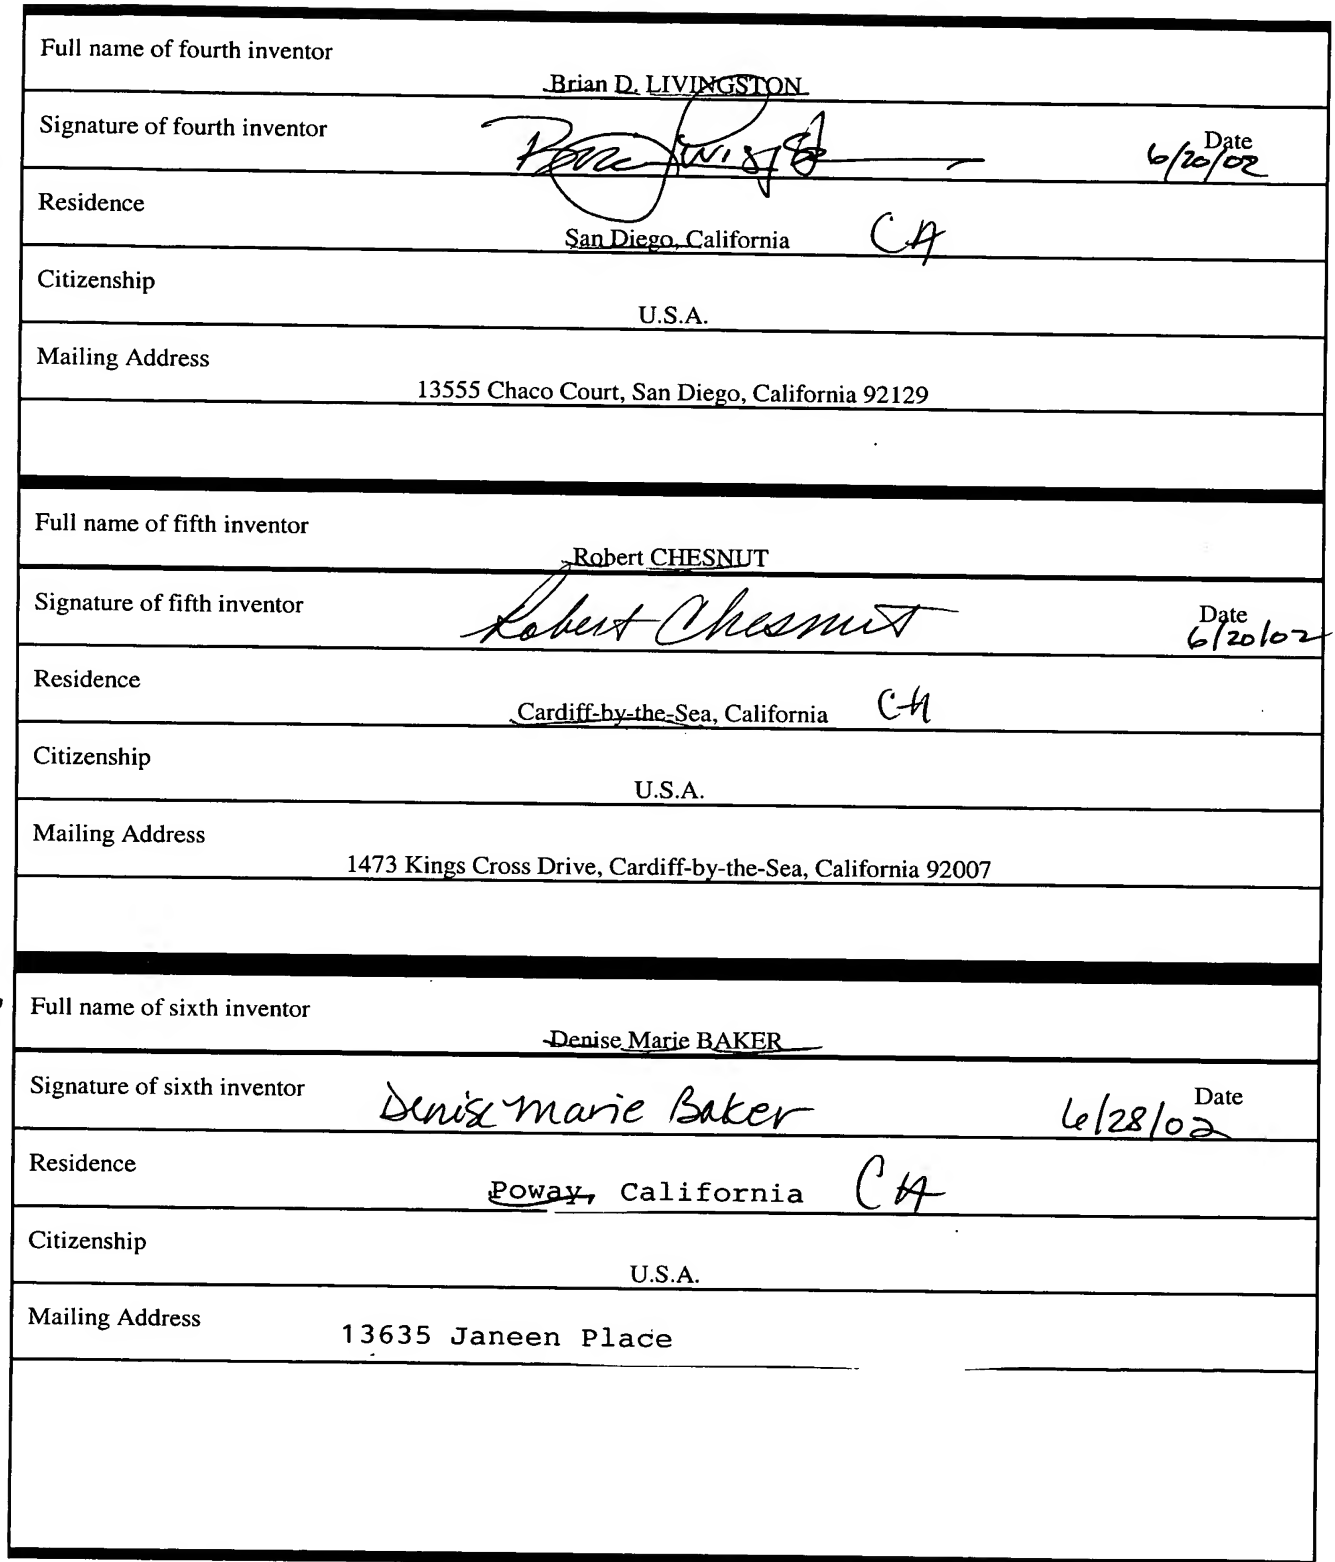 Full name of fourth inventor
Brian D. LIVINGSTON
Signature of fourth inventor
Date
6/20/02
Residence
San Diego, California CA
Citizenship
U.S.A.
Mailing Address
13555 Chaco Court, San Diego, California 92129
Full name of fifth inventor
Robert CHESNUT
Signature of fifth inventor Robert Chesnut Date
6/20/02
Residence
Cardiff-by-the-Sea, California CA
Citizenship
U.S.A.
Mailing Address
1473 Kings Cross Drive, Cardiff-by-the-Sea, California 92007
Full name of sixth inventor
Denise Marie BAKER
Signature of sixth inventor Denise Marie Baker Date
6/28/02
Residence
Poway, California CA
Citizenship
U.S.A.
Mailing Address
13635 Janeen Place